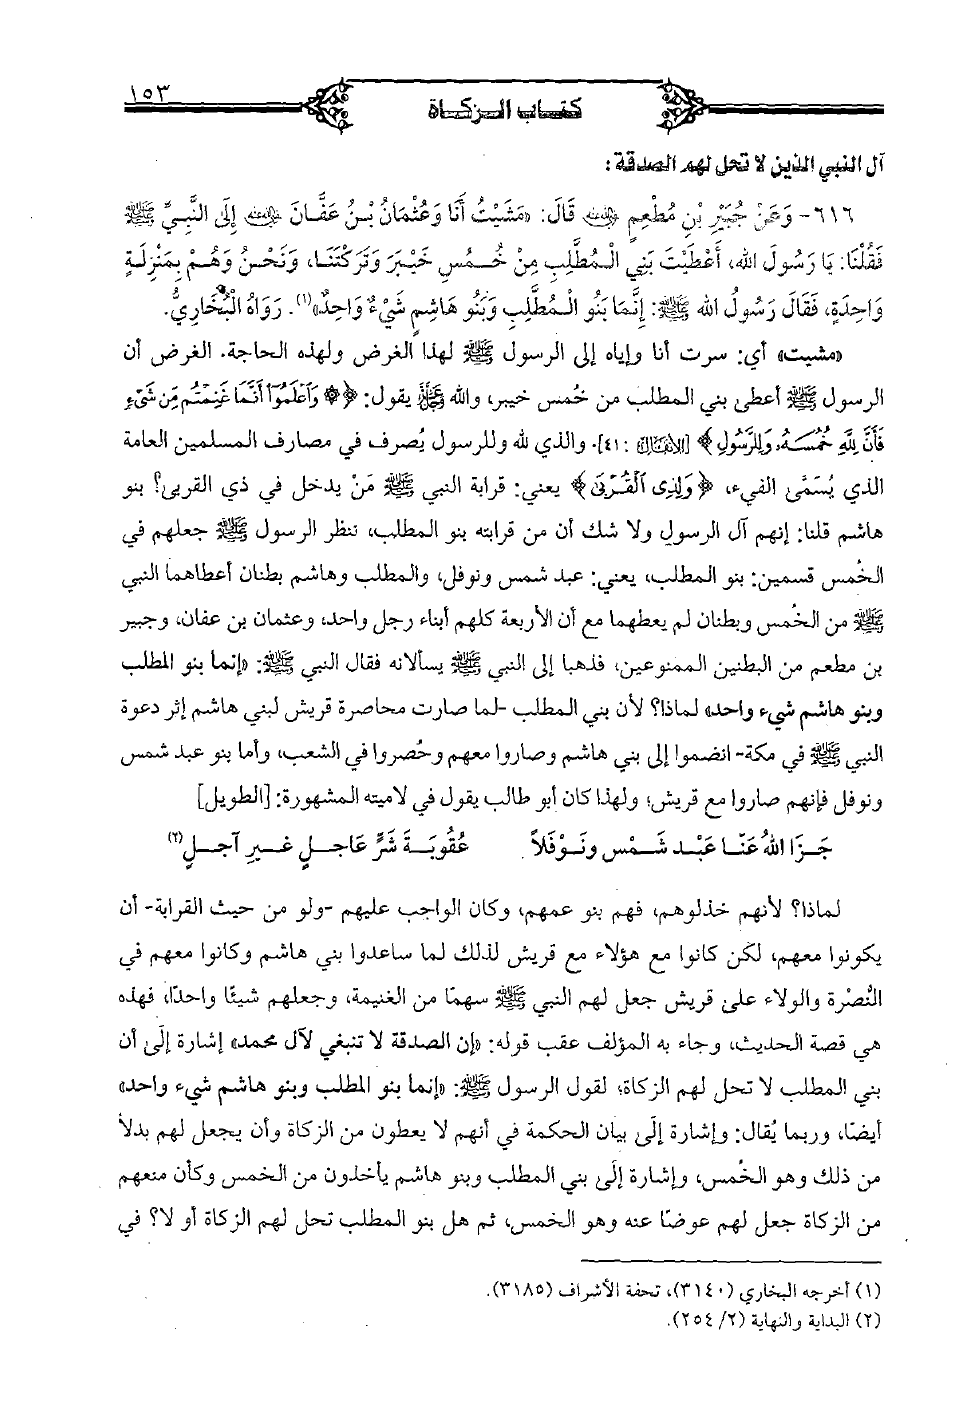 ١٥٣
كتاب الزكاة
آل النبي الذين لا تحل لهم الصدقة:
٦١٦- وَعَنْ جُبَيْرِ بْنِ مُطْعِمٍ رضي الله عنه قَالَ: «مَشَيْتُ أَنَا وَعُثْمَانُ بْنُ عَفَّانَ رضي الله عنه إِلَى النَّبِيِّ ﷺ
فَقُلْنَا: يَا رَسُولَ اللهِ، أَعْطَيْتَ بَنِي الْمُطَّلِبِ مِنْ خُمُسِ خَيْبَرَ وَتَرَكْتَنَا، وَنَحْنُ وَهُمْ بِمَنْزِلَةٍ
وَاحِدَةٍ، فَقَالَ رَسُولُ اللهِ ﷺ: إِنَّمَا بَنُو الْمُطَّلِبِ وَبَنُو هَاشِمٍ شَيْءٌ وَاحِدٌ»(١). رَوَاهُ الْبُخَارِيُّ.
«مشيت» أي: سرت أنا وإياه إلى الرسول ﷺ لهذا الغرض ولهذه الحاجة. الغرض أن
الرسول ﷺ أعطى بني المطلب من خُمس خيبر، والله عز وجل يقول: ﴿۞ وَٱعْلَمُوٓا۟ أَنَّمَا غَنِمْتُم مِّن شَىْءٍ
فَأَنَّ لِلَّهِ خُمُسَهُۥ وَلِلرَّسُولِ﴾ [الأنفال: ٤١]. والذي لله وللرسول يُصرف في مصارف المسلمين العامة
الذي يُسَمَّى الفيء، ﴿وَلِذِى ٱلْقُرْبَىٰ﴾ يعني: قرابة النبي ﷺ مَنْ يدخل في ذي القربى؟ بنو
هاشم قلنا: إنهم آل الرسول ولا شك أن من قرابته بنو المطلب، ننظر الرسول ﷺ جعلهم في
الخُمس قسمين: بنو المطلب، يعني: عبد شمس ونوفل، والمطلب وهاشم بطنان أعطاهما النبي
ﷺ من الخُمس وبطنان لم يعطهما مع أن الأربعة كلهم أبناء رجل واحد، وعثمان بن عفان، وجبير
بن مطعم من البطنين الممنوعين، فذهبا إلى النبي ﷺ يسألانه فقال النبي ﷺ: «إنما بنو المطلب
وبنو هاشم شيء واحد» لماذا؟ لأن بني المطلب -لما صارت محاصرة قريش لبني هاشم إثر دعوة
النبي ﷺ في مكة- انضموا إلى بني هاشم وصاروا معهم وحُصروا في الشعب، وأما بنو عبد شمس
ونوفل فإنهم صاروا مع قريش؛ ولهذا كان أبو طالب يقول في لاميته المشهورة: [الطويل]
جَزَا اللهُ عَنَّا عَبْدَ شَمْسٍ ونَوْفَلاً عُقُوبَةَ شَرٍّ عَاجلٍ غَيرِ آجلٍ(٢)
لماذا؟ لأنهم خذلوهم، فهم بنو عمهم، وكان الواجب عليهم -ولو من حيث القرابة- أن
يكونوا معهم، لكن كانوا مع هؤلاء مع قريش لذلك لما ساعدوا بني هاشم وكانوا معهم في
النُّصْرة والولاء على قريش جعل لهم النبي ﷺ سهمًا من الغنيمة، وجعلهم شيئًا واحدًا، فهذه
هي قصة الحديث، وجاء به المؤلف عقب قوله: «إن الصدقة لا تنبغي لآل محمد» إشارة إلَى أن
بني المطلب لا تحل لهم الزكاة؛ لقول الرسول ﷺ: «إنما بنو المطلب وبنو هاشم شيء واحد»
أيضًا، وربما يُقال: وإشارة إلَى بيان الحكمة في أنهم لا يعطون من الزكاة وأن يجعل لهم بدلاً
من ذلك وهو الخُمس، وإشارة إلَى بني المطلب وبنو هاشم يأخذون من الخمس وكأن منعهم
من الزكاة جعل لهم عوضًا عنه وهو الخمس، ثم هل بنو المطلب تحل لهم الزكاة أو لا؟ في
(١) أخرجه البخاري (٣١٤٠)، تحفة الأشراف (٣١٨٥).
(٢) البداية والنهاية (٢/ ٢٥٤).